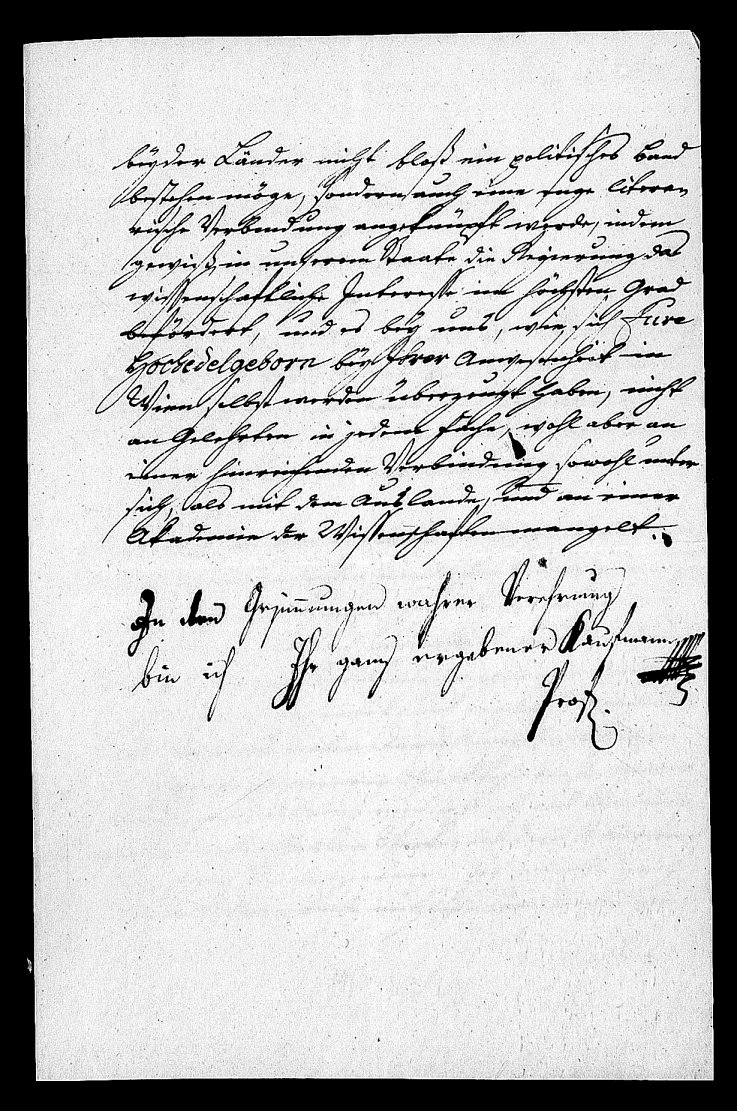 beyder Länder nicht bloß ein politisches Band
bestehen möge, sondern auch eine enge litera-
rische Verbindung angeknüpft werde, indem
gewiß in unserem Staate die Regierung das
wissenschaftliche Interesse im höchsten Grad
befördert, und es bey uns, wie sich Eure
Hochedelgeborn bey Ihrer Anwesenheit in
Wien selbst werden überzeugt haben, nicht
an Gelehrten in jedem Fache, wohl aber an
einer hinreichenden Verbindung sowohl unter
sich, als mit dem Auslande, und an einer
Akademie der Wissenschaften mangelt.
In den Gesinnungen wahrer Verehrung
bin ich Ihr ganz ergebener Kaufmann
Prof.